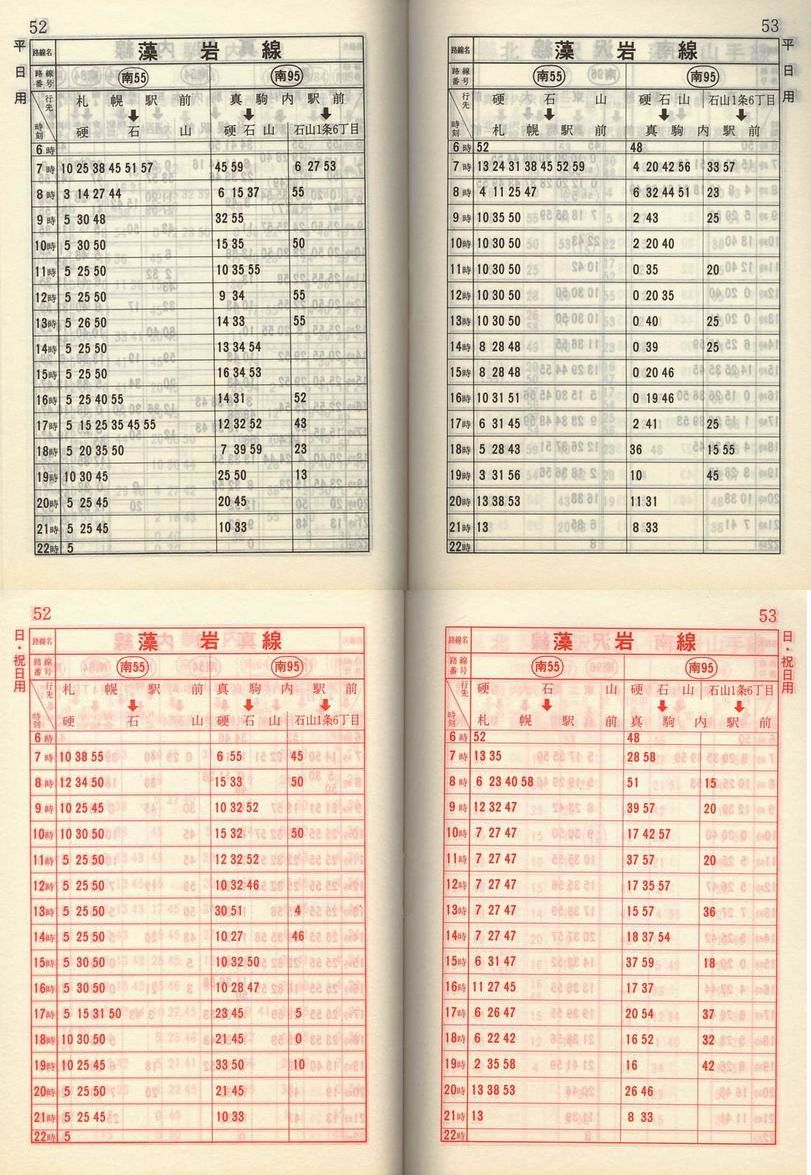 52
平日用
路線名 藻岩線
路線番号 南55 南95
行先 札幌駅前 真駒内駅前
時刻 硬石山 硬石山 石山1条6丁目
6時
7時 10 25 38 45 51 57 45 59 6 27 53
8時 3 14 27 44 6 15 37 55
9時 5 30 48 32 55
10時 5 30 50 15 35 50
11時 5 25 50 10 35 55
12時 5 25 50 9 34 55
13時 5 26 50 14 33 55
14時 5 25 50 13 34 54
15時 5 25 50 16 34 53
16時 5 25 40 55 14 31 52
17時 5 15 25 35 45 55 12 32 52 43
18時 5 20 35 50 7 39 59 23
19時 10 30 45 25 50 13
20時 5 25 45 20 45
21時 5 25 45 10 33
22時 5
53
平日用
路線名 藻岩線
路線番号 南55 南95
行先 硬石山 硬石山 石山1条6丁目
時刻 札幌駅前 真駒内駅前
6時 52 48
7時 13 24 31 38 45 52 59 4 20 42 56 33 57
8時 4 11 25 47 6 32 44 51 23
9時 10 35 50 2 43 25
10時 10 30 50 2 20 40
11時 10 30 50 0 35 20
12時 10 30 50 0 20 35
13時 10 30 50 0 40 25
14時 8 28 48 0 39 25
15時 8 28 48 0 20 46
16時 10 31 51 0 19 46
17時 6 31 45 2 41 25
18時 5 28 43 36 15 55
19時 3 31 56 10 45
20時 13 38 53 11 31
21時 13 8 33
22時
52
日・祝日用
路線名 藻岩線
路線番号 南55 南95
行先 札幌駅前 真駒内駅前
時刻 硬石山 硬石山 石山1条6丁目
6時
7時 10 38 55 6 55 45
8時 12 34 50 15 33 50
9時 10 25 45 10 32 52
10時 10 30 50 15 32 50
11時 5 25 50 12 32 52
12時 5 25 50 10 32 46
13時 5 25 50 30 51 4
14時 5 25 50 10 27 46
15時 5 30 50 10 32 50
16時 5 30 50 10 28 47
17時 5 15 31 50 23 45 5
18時 10 30 50 21 45 0
19時 10 25 45 33 50 10
20時 5 25 50 21 45
21時 5 25 45 10 33
22時 5
53
日・祝日用
路線名 藻岩線
路線番号 南55 南95
行先 硬石山 硬石山 石山1条6丁目
時刻 札幌駅前 真駒内駅前
6時 52 48
7時 13 35 28 58
8時 6 23 40 58 51 15
9時 12 32 47 39 57 20
10時 7 27 47 17 42 57
11時 7 27 47 37 57 20
12時 7 27 47 17 35 57
13時 7 27 47 15 57 36
14時 7 27 47 18 37 54
15時 6 31 47 37 59 18
16時 11 27 45 17 37
17時 6 26 47 20 54 37
18時 6 22 42 16 52 32
19時 2 35 58 16 42
20時 13 38 53 26 46
21時 13 8 33
22時